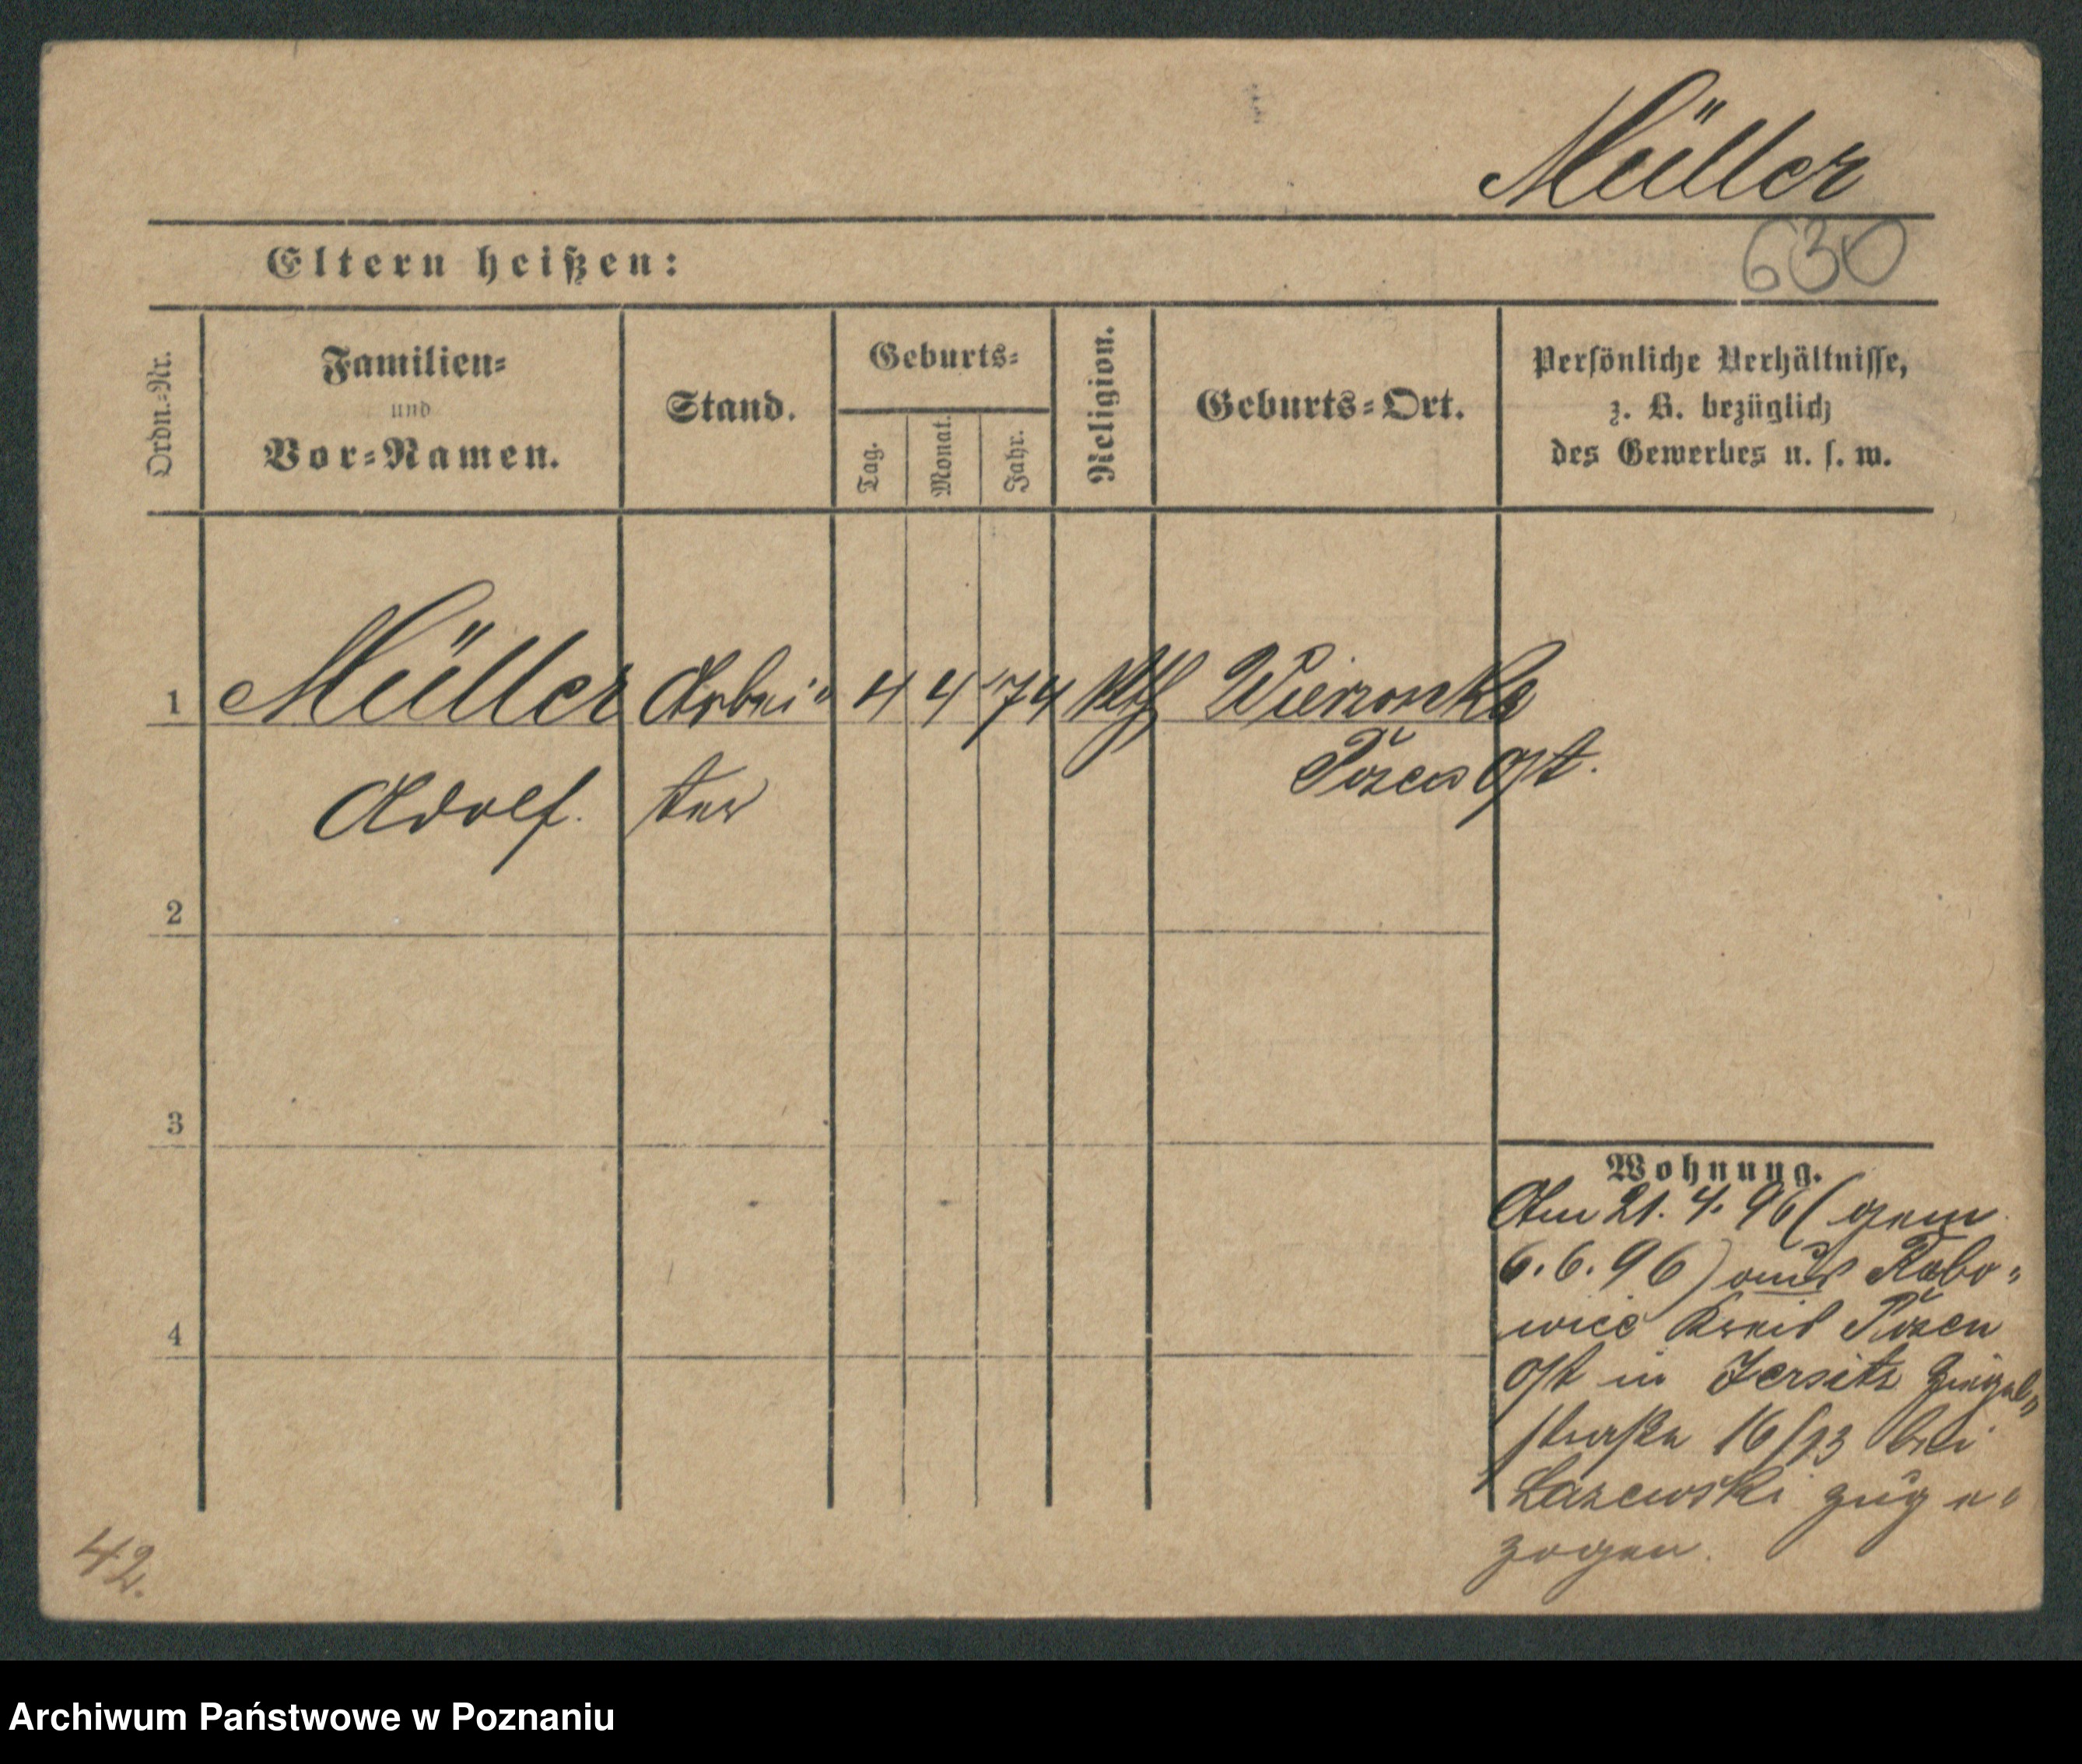 Müller
630
Eltern heißen:
Ordn.-Nr.
Familien-
und
Vor-Namen.
Stand.
Geburts-
Tag.
Monat.
Jahr.
Religion.
Geburts-Ort.
Persönliche Verhältnisse,
z. B. bezüglich
des Gewerbes u. s. w.
1 Müller Arbei- 4 4 74 Kth Wierzonka
Adolf. ter Posen Ost.
2
3
4
Wohnung.
Am 21. 4. 96 (gem
6. 6. 96) aus Robo-
wice Kreis Posen
Ost in Jersitz Ziegel-
straße 16/93 bei
Lazewski zuge-
zogen.
42.
Archiwum Państwowe w Poznaniu